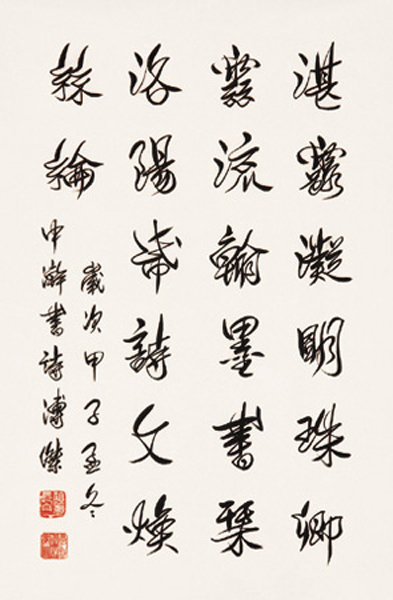 湛露凝明珠卿
雲流翰墨書琹
洛陽詩文煥
絲綸
歲次甲子孟冬
中澣書詩溥傑